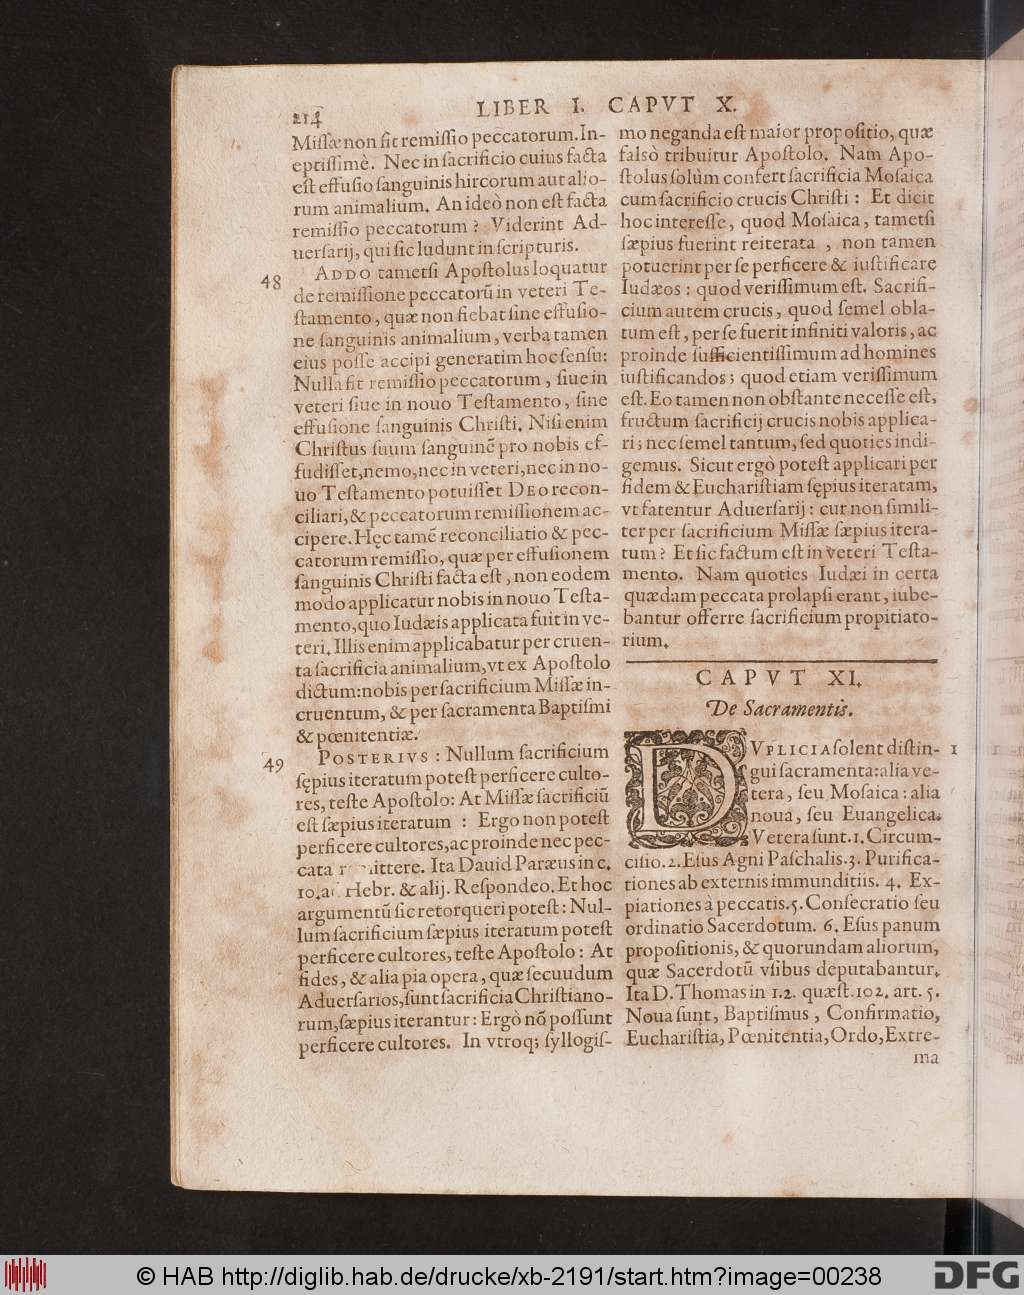 214
LIBER I. CAPVT X.
Missæ non fit remissio peccatorum. In-
eptissimè. Nec in sacrificio cuius facta
est effusio sanguinis hircorum aut alio-
rum animalium. An ideò non est facta
remissio peccatorum? Viderint Ad-
uersarij, qui sic ludunt in scripturis.
48
ADDO tametsi Apostolus loquatur
de remissione peccatorũ in veteri Te-
stamento, quæ non fiebat sine effusio-
ne sanguinis animalium, verba tamen
eius posse accipi generatim hoc sensu:
Nulla fit remissio peccatorum, siue in
veteri siue in nouo Testamento, sine
effusione sanguinis Christi. Nisi enim
Christus suum sanguinẽ pro nobis ef-
fudisset, nemo, nec in veteri, nec in no-
uo Testamento potuisset DEO recon-
ciliari, & peccatorum remissionem ac-
cipere. Hęc tamẽ reconciliatio & pec-
catorum remissio, quæ per effusionem
sanguinis Christi facta est, non eodem
modo applicatur nobis in nouo Testa-
mento, quo Iudæis applicata fuit in ve-
teri. Illis enim applicabatur per cruen-
ta sacrificia animalium, vt ex Apostolo
dictum: nobis per sacrificium Missæ in-
cruentum, & per sacramenta Baptismi
& pœnitentiæ.
49
POSTERIVS: Nullum sacrificium
sępius iteratum potest perficere culto-
res, teste Apostolo: At Missæ sacrificiũ
est sæpius iteratum : Ergo non potest
perficere cultores, ac proinde nec pec-
cata r ittere. Ita Dauid Paræus in c.
10. a Hebr. & alij. Respondeo. Et hoc
argumentũ sic retorqueri potest: Nul-
lum sacrificium sæpius iteratum potest
perficere cultores, teste Apostolo: At
fides, & alia pia opera, quæ secuudum
Aduersarios, sunt sacrificia Christiano-
rum, sæpius iterantur: Ergò nõ possunt
perficere cultores. In vtroq; syllogis-
mo neganda est maior propositio, quæ
falsò tribuitur Apostolo. Nam Apo-
stolus solùm confert sacrificia Mosaica
cum sacrificio crucis Christi: Et dicit
hoc interesse, quod Mosaica, tametsi
sæpius fuerint reiterata , non tamen
potuerint per se perficere & iustificare
Iudæos: quod verissimum est. Sacrifi-
cium autem crucis, quod semel obla-
tum est, per se fuerit infiniti valoris, ac
proinde sufficientissimum ad homines
iustificandos; quod etiam verissimum
est. Eo tamen non obstante necesse est,
fructum sacrificij crucis nobis applica-
ri; nec semel tantum, sed quoties indi-
gemus. Sicut ergò potest applicari per
fidem & Eucharistiam sępius iteratam,
vt fatentur Aduersarij: cur non simili-
ter per sacrificium Missæ sæpius itera-
tum? Et sic factum est in veteri Testa-
mento. Nam quoties Iudæi in certa
quædam peccata prolapsi erant, iube-
bantur offerre sacrificium propitiato-
rium.
CAPVT XI.
De Sacramentis.
DVPLICIA solent distin-
1
gui sacramenta: alia ve-
tera, seu Mosaica: alia
noua, seu Euangelica.
Vetera sunt. 1. Circum-
cisio. 2. Esus Agni Paschalis. 3. Purifica-
tiones ab externis immunditiis. 4. Ex-
piationes à peccatis. 5. Consecratio seu
ordinatio Sacerdotum. 6. Esus panum
propositionis, & quorundam aliorum,
quæ Sacerdotũ vsibus deputabantur.
Ita D. Thomas in 1.2. quæst. 102. art. 5.
Noua sunt, Baptismus, Confirmatio,
Eucharistia, Pœnitentia, Ordo, Extre-
ma
© HAB http://diglib.hab.de/drucke/xb-2191/start.htm?image=00238
DFG